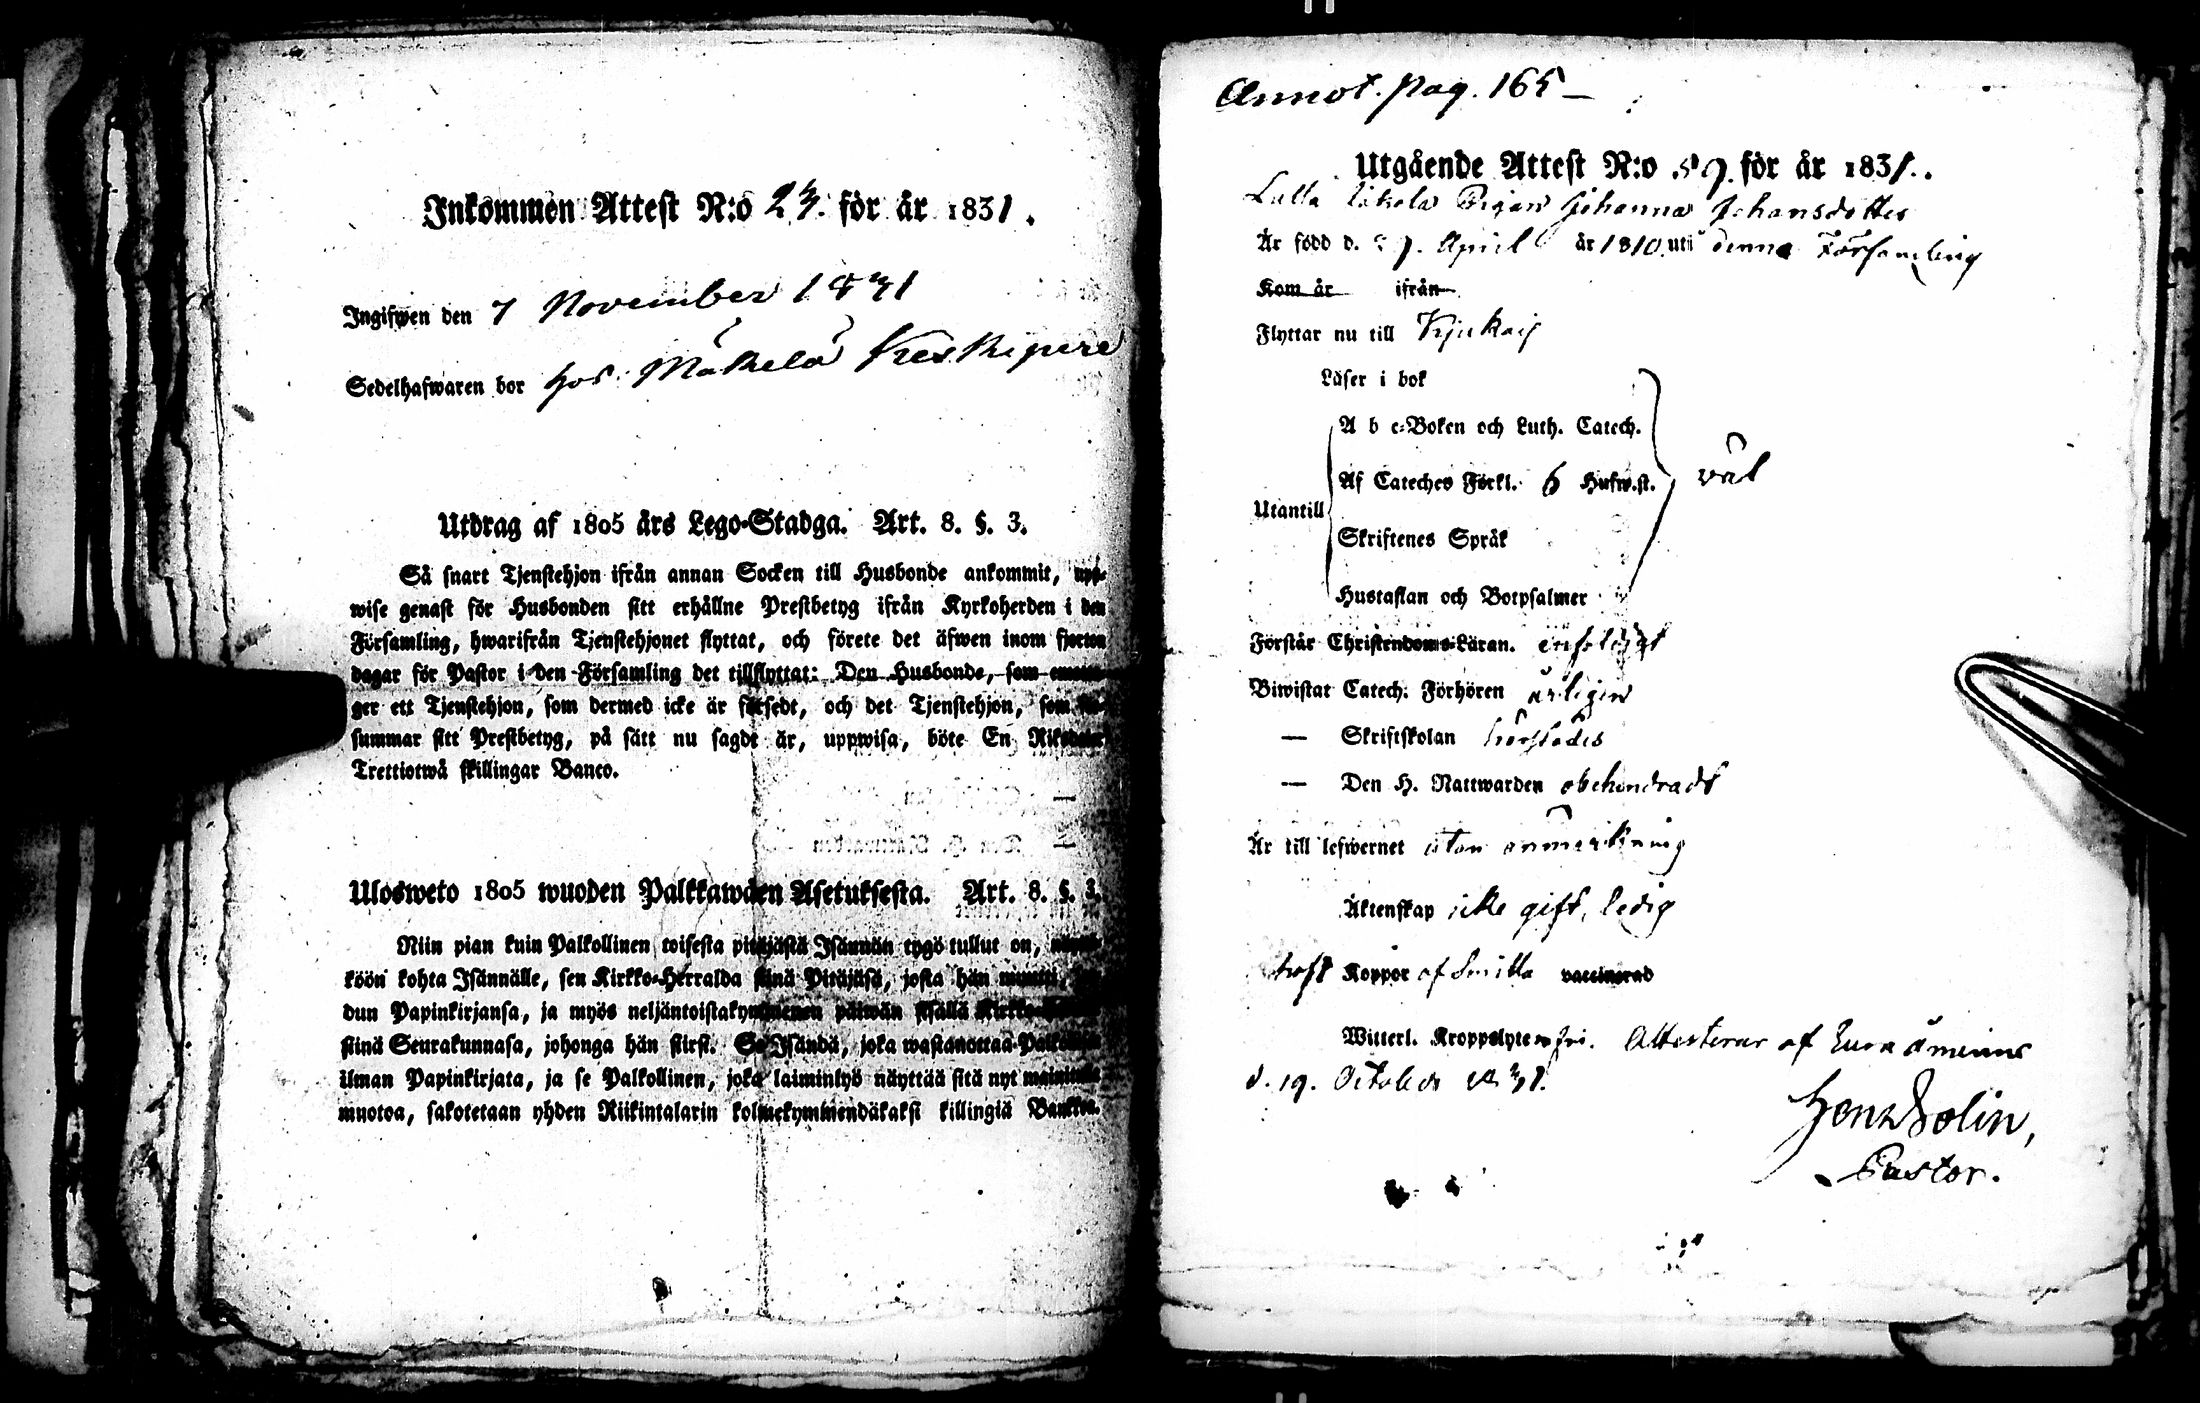 Inkommen Attest N:o 23. för år 1831.
Ingifwen den 7 November 1831
Sedelhafwaren bor hos Mäkelä Keskipere
Utdrag af 1805 års Lego-Stadga. Art. 8. §. 3.
Så snart Tjenstehjon ifrån annan Socken till Husbonde ankommit, upp-
wise genast för Husbonden sitt erhållne Prestbetyg ifrån Kyrkoherden i den
Församling, hwarifrån Tjenstehjonet flyttat, och förete det äfwen inom fjorton
dagar för Pastor i den Församling det tillflyttat: Den Husbonde, som emotta-
ger ett Tjenstehjon, som dermed icke är försedt, och det Tjenstehjon, som för-
summar sitt Prestbetyg, på sätt nu sagdt är, uppwisa, böte En Riksdaler
Trettiotwå skillingar Banco.
Ulosweto 1805 wuoden Palkkawäen Asetuksesta. Art. 8. §. 3.
Niin pian kuin Palkollinen toisesta pitäjästä Isännän tygö tullut on,
köön kohta Isännälle, sen Kirkko-Herralda siinä Pitäjäsä, josta hän muutti,
dun Papinkirjansa, ja myös neljäntoistakymmenen päiwän sisällä
siinä Seurakunnasa, johonga hän siirsi. Se Isändä, joka wastanottaa
ilman Papinkirjata, ja se Palkollinen, joka laiminlyö näyttää sitä nyt mainitulla
muotoa, sakotetaan yhden Riikintalarin kolmekymmendäkaksi killingiä Bankkoa.
Annot. pag. 165
Utgående Attest N:o 89 för år 1831.
Lalla Pigan Johanna Johansdotter
Är född d. 27. April år 1810. uti denna Församling
Kom år ifrån
Flyttar nu till Kjukais
Läser i bok
A b c-Boken och Luth. Catech.
Af Cateches Förkl. 6 Hufw.st. väl
Utantill
Skriftenes Språk
Hustaflan och Botpsalmer
Förstår Christendoms-Läran. enfaldigt
Biwistat Catech. Förhören årligen
— Skriftskolan härstädes
— Den H. Nattwarden obehindradt
Är till lefwernet utan anmärkning
Äktenskap icke gift, ledig
haft Koppor af Smitta vaccinerad
Witterl. Kroppslyten fri. Attesterar af Eura åminne
d. 19. October 1831.
Pastor.